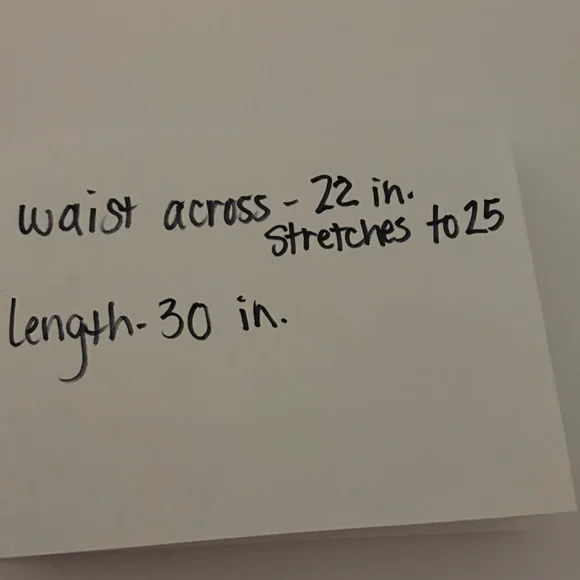 waist across - 22 in.
stretches to 25
length - 30 in.